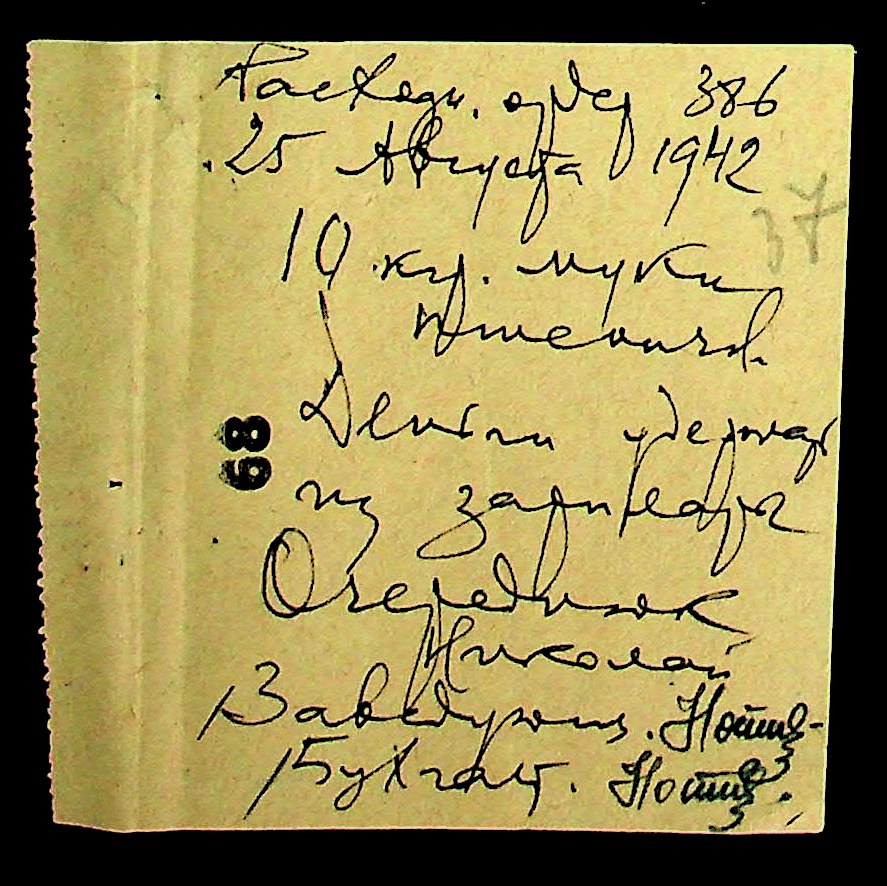 Расходн. ордер 386
25 Августа 1942
37
10 кгр. муки
пшеничн.
Деньги удержать
68
из зарплаты
Очереднюк
Николай
Заведующ.
Бухгалт.